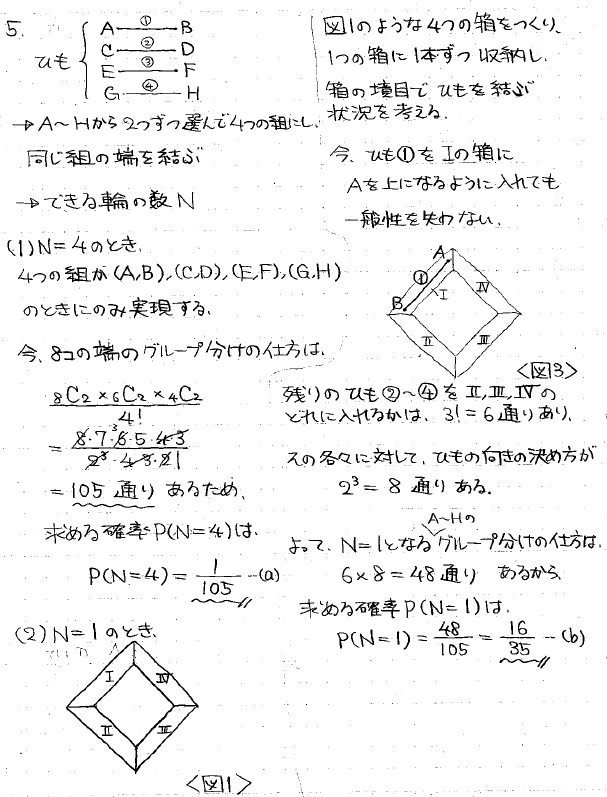 5.
ひも
A ① B
C ② D
E ③ F
G ④ H
→ A～Hから2つずつ選んで4つの組にし、
同じ組の端を結ぶ
→ できる輪の数 N
(1) N=4のとき、
4つの組が (A,B),(C,D),(E,F),(G,H)
のときにのみ実現する。
今、8コの端のグループ分けの仕方は、
8C2 × 6C2 × 4C2 / 4!
= 8·7·6·5·4·3 / 2^3·4·3·2·1
= 105 通り あるため、
求める確率P(N=4)は、
P(N=4) = 1/105 --(a)
(2) N=1 のとき、
I
IV
II
III
<図1>
図1のような4つの箱をつくり、
1つの箱に1本ずつ収納し、
箱の境目で ひもを結ぶ
状況を考える。
今、ひも①を Iの箱に
Aを上になるように入れても
一般性を失わない。
A
①
I
IV
B
II
III
<図3>
残りの ひも②～④を II, III, IVの
どれに入れるかは、3! = 6通りあり、
その各々に対して、ひもの向きの決め方が
2^3 = 8 通りある。
A～Hの
よって、N=1となるグループ分けの仕方は、
6×8 = 48通り あるから、
求める確率P(N=1)は、
P(N=1) = 48/105 = 16/35 --(b)